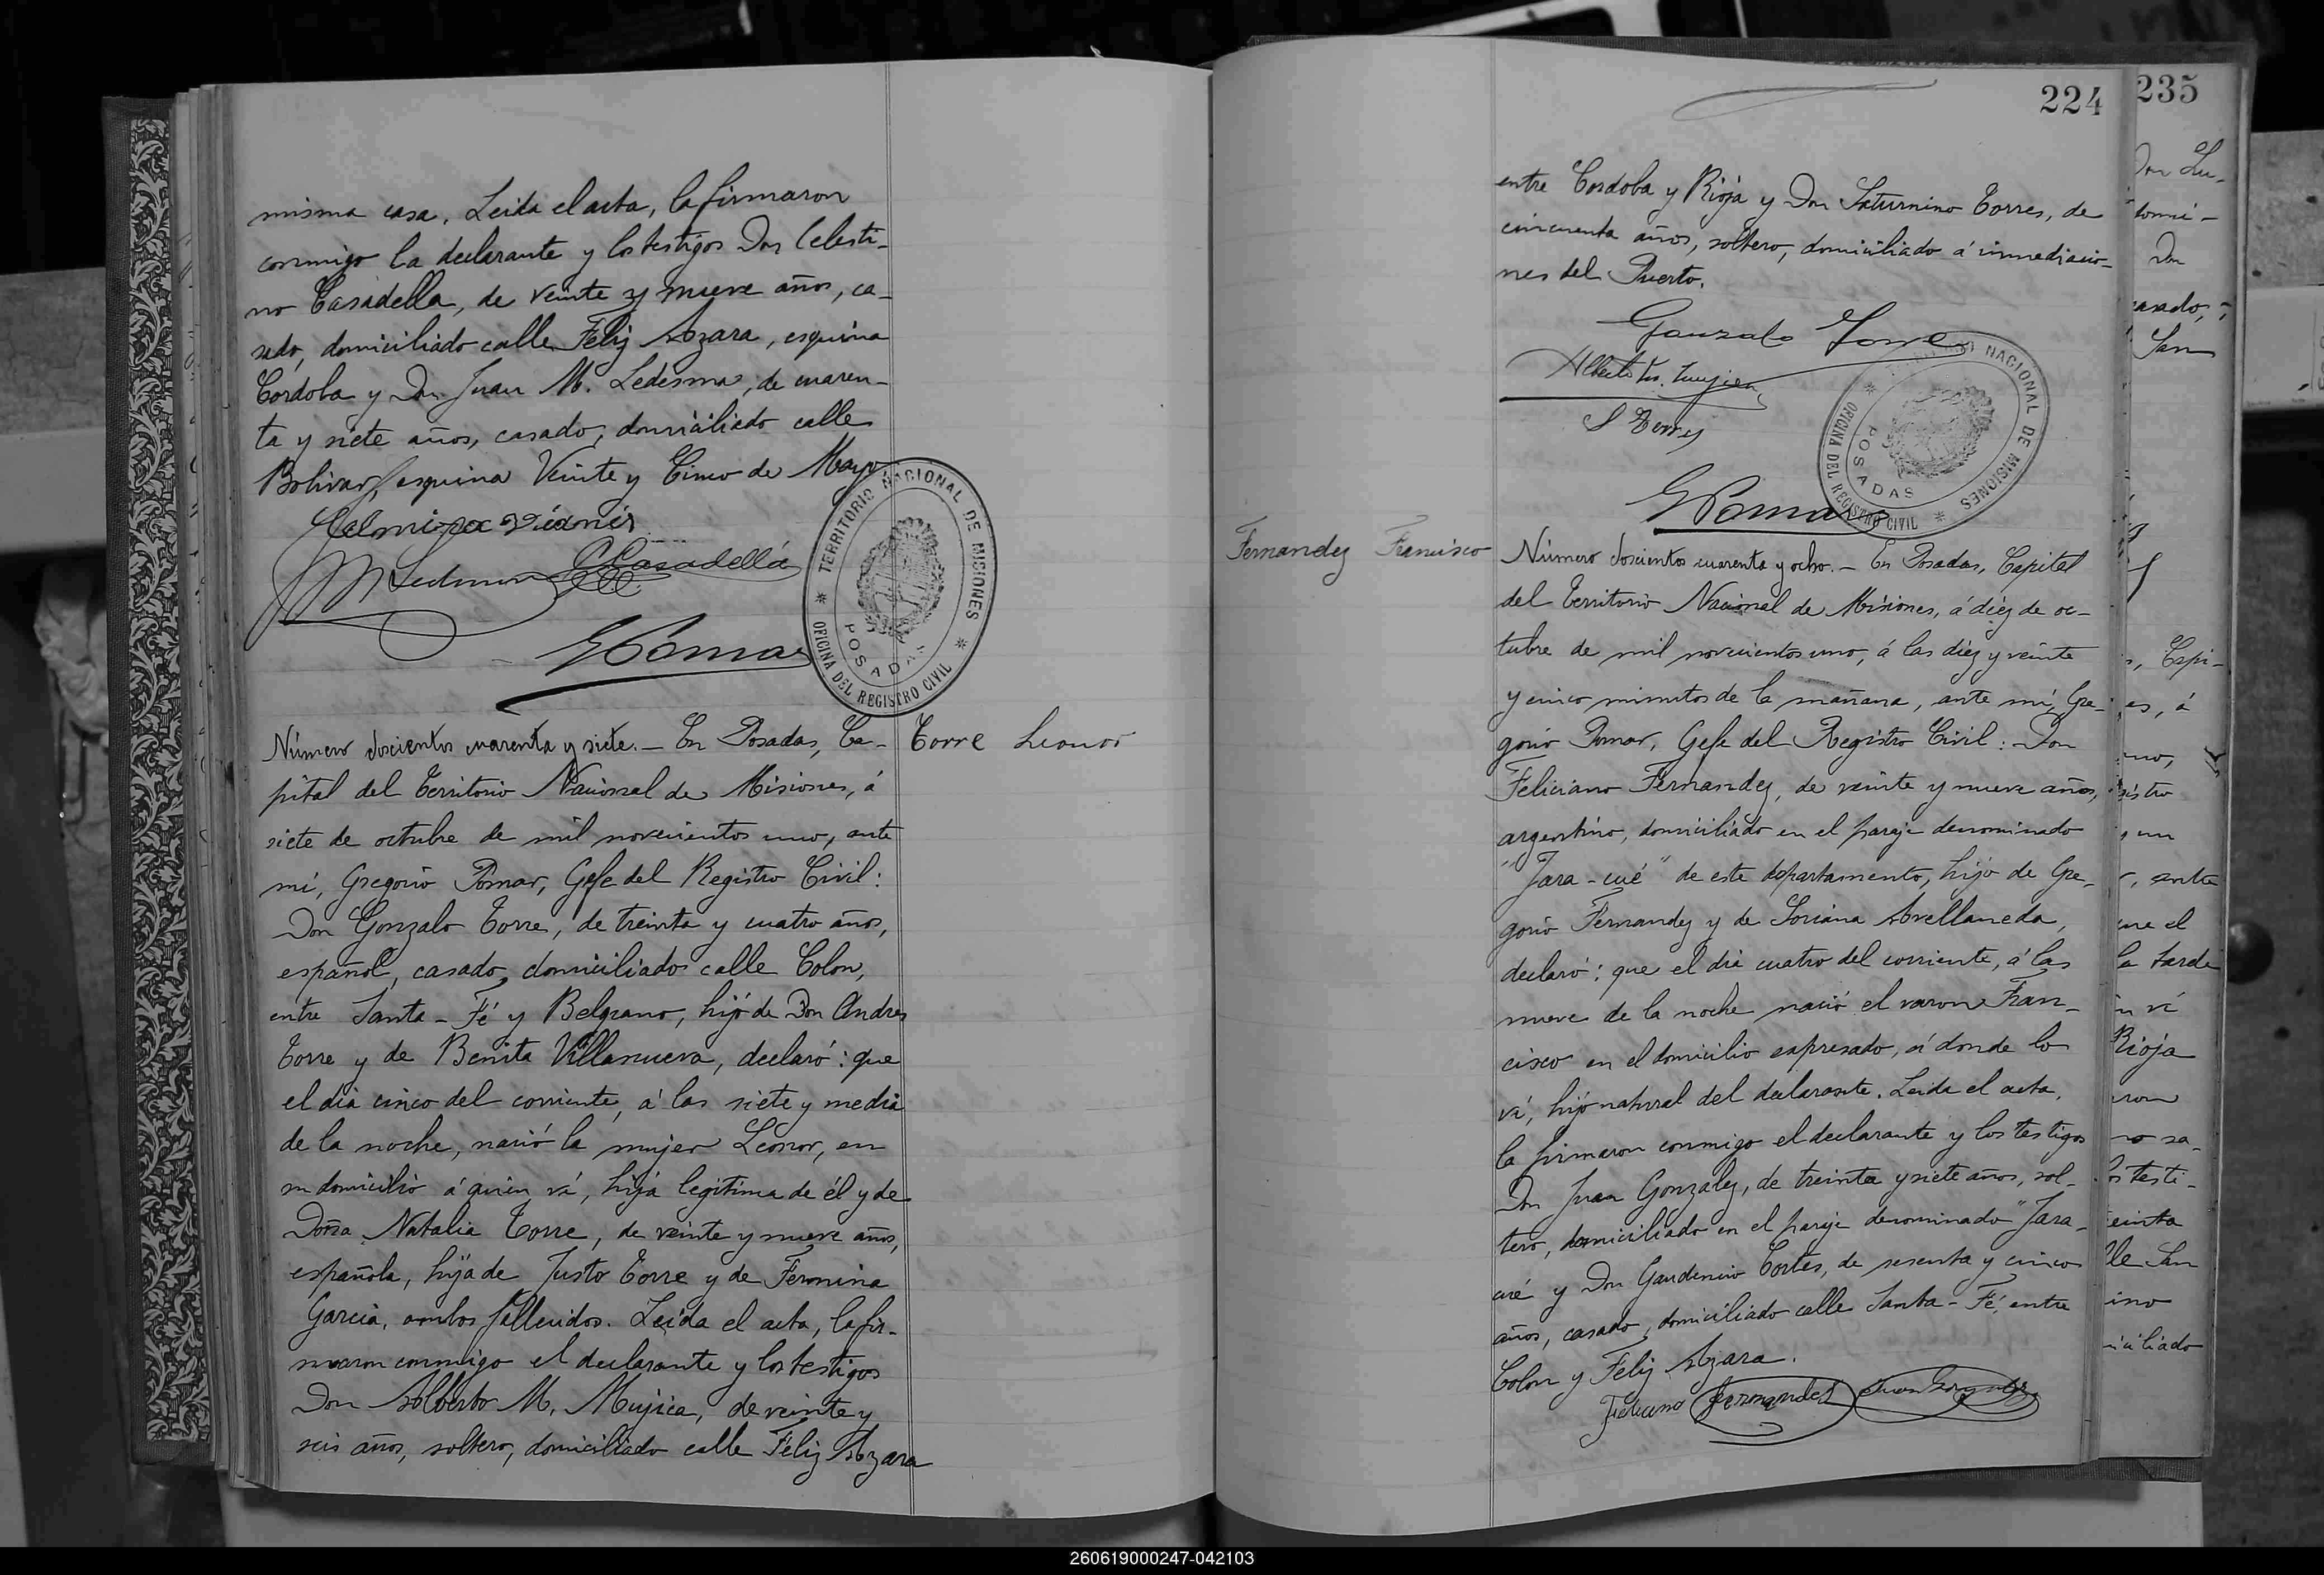 misma casa. Leida el acta, la firmaron
conmigo la declarante y los testigos Don Celesti-
no Casadella, de veinte y nueve años, ca-
sado, domiciliado calle Feliz Azara, esquina
Cordoba y Don Juan M. Ledesma, de cuaren-
ta y siete años, casado, domiciliado calle
Bolivar, esquina Veinte y Cinco de Mayo
M Ledesma CCasadella
GPomar
TERRITORIO NACIONAL DE MISIONES
POSADAS
OFICINA DEL REGISTRO CIVIL
Torre Leonor
Número doscientos cuarenta y siete.- En Posadas, Ca-
pital del Territorio Nacional de Misiones, á
siete de octubre de mil novecientos uno, ante
mí, Gregorio Pomar, Gefe del Registro Civil:
Don Gonzalo Torre, de treinta y cuatro años,
español, casado, domiciliados calle Colon,
entre Santa-Fé y Belgrano, hijo de Don Andres
Torre y de Benita Villanueva, declaró: que
el dia cinco del corriente, á las siete y media
de la noche, nació la mujer Leonor, en
su domicilio á quien vá, hija legitima de él y de
Doña Natalia Torre, de veinte y nueve años,
española, hija de Justo Torre y de Fermina
Garcia, ambos fallecidos. Leida el acta, la fir-
maron conmigo el declarante y los testigos
Don Alberto M. Mujica, de veinte y
seis años, soltero, domiciliado calle Feliz Azara
224
entre Cordoba y Rioja y Don Saturnino Torres, de
cincuenta años, soltero, domiciliado á inmediacio-
nes del Puerto.
Gonzalo Torre
Alberto M. Mujica
S Torres
GPomar
TERRITORIO NACIONAL DE MISIONES
POSADAS
OFICINA DEL REGISTRO CIVIL
Fernandez Francisco
Número doscientos cuarenta y ocho.- En Posadas, Capital
del Territorio Nacional de Misiones, á diez de oc-
tubre de mil novecientos uno, á las diez y veinte
y cinco minutos de la mañana, ante mí, Gre-
gorio Pomar, Gefe del Registro Civil: Don
Feliciano Fernandez, de veinte y nueve años,
argentino, domiciliado en el paraje denominado
"Jara-cué" de este departamento, hijo de Gre-
gorio Fernandez y de Soriana Avellaneda,
declaró: que el dia cuatro del corriente, á las
nueve de la noche nació el varon Fran-
cisco en el domicilio expresado, á donde lo
vá, hijo natural del declarante. Leida el acta,
la firmaron conmigo el declarante y los testigos
Don Juan Gonzalez, de treinta y siete años, sol-
tero, domiciliado en el paraje denominado "Jara-
cué y Don Gaudencio Cortés, de sesenta y cinco
años, casado, domiciliado calle Santa-Fé, entre
Colon y Feliz Azara.
Feliciano Fernandez Juan Gonzalez
235
Don Lu-
domi-
Don
asado,
San
, Capi-
es, á
uno,
istro
un
, entre
que el
la tarde
vá
Rioja
ron
no sa-
los testi-
einta
lle San
ino
iciliado
260619000247-042103